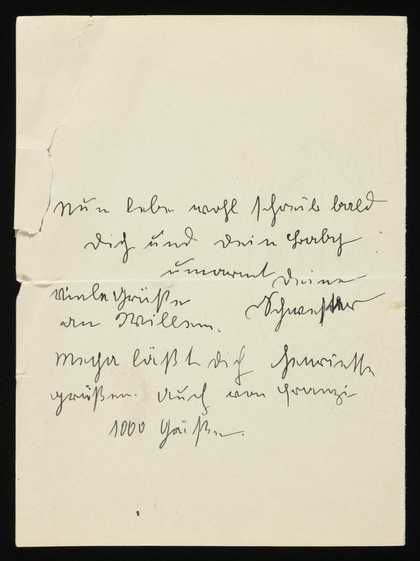 Nun lebe wohl schreib bald
Dich und Dein Baby
umarmt Deine
Schwester
Viele Grüße
an Willem.
läßt Dich Henriette
grüßen. Auch von Franzi
1000 Grüße.